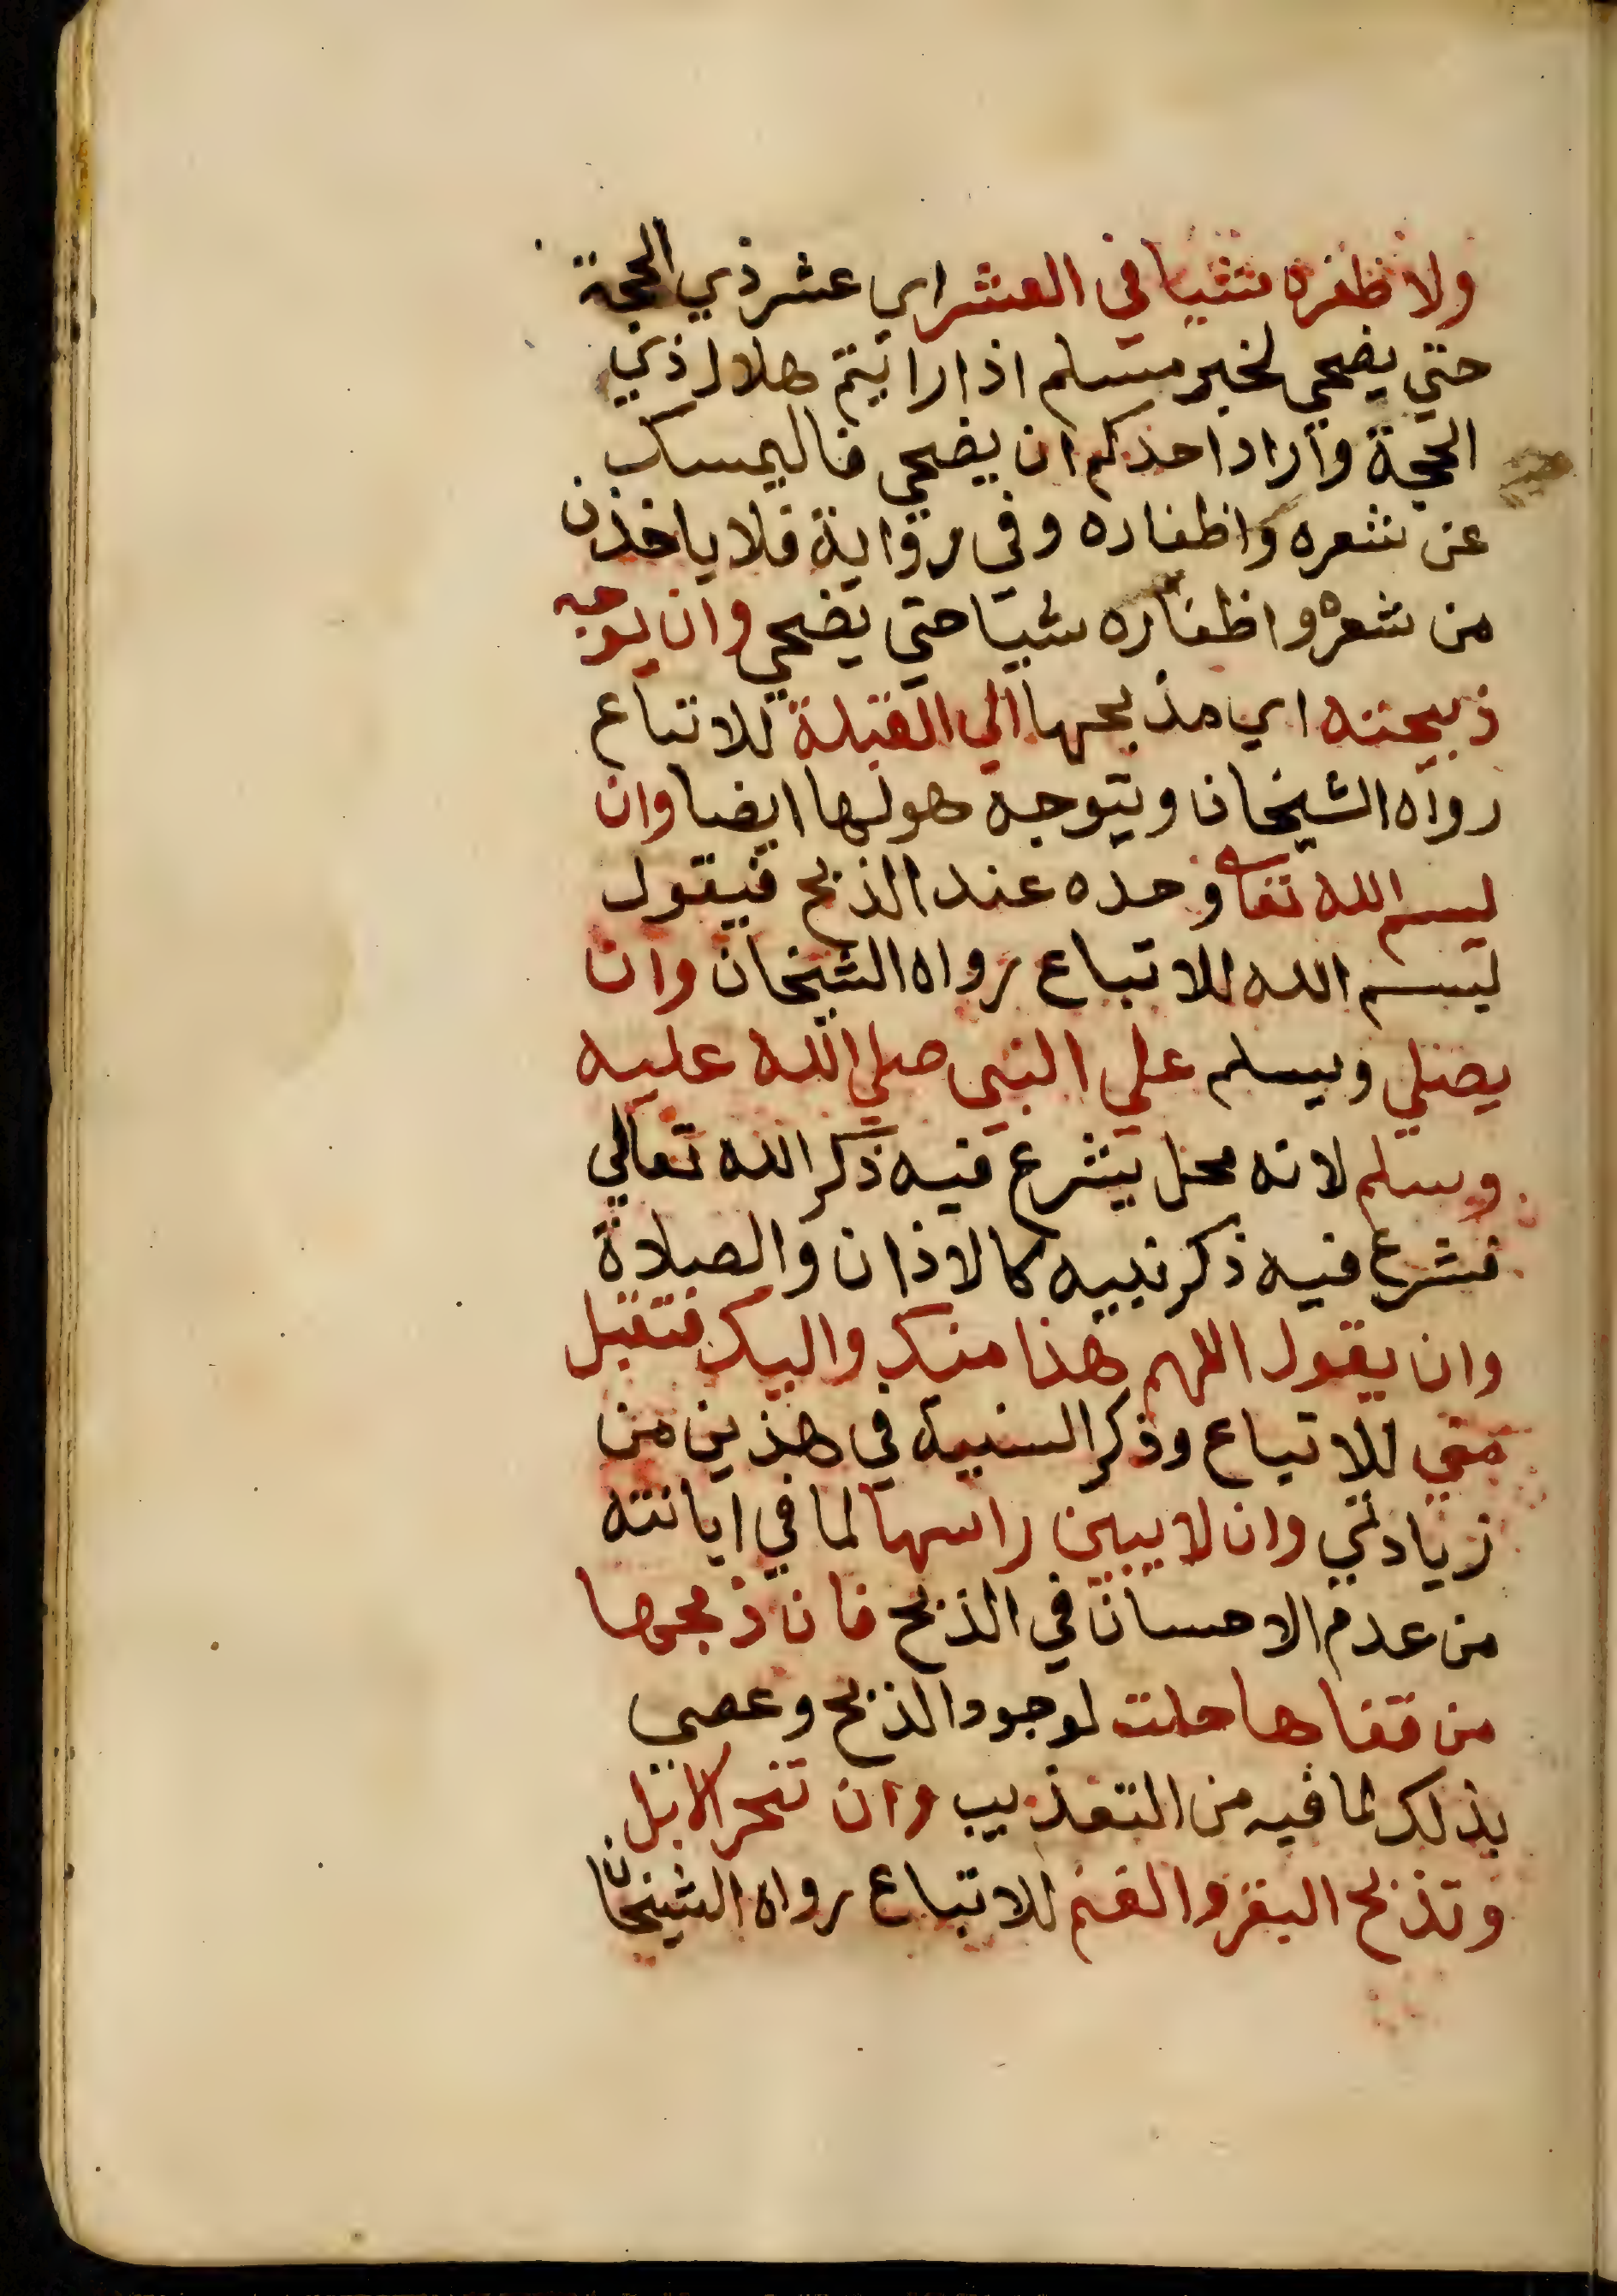 ولا ظفره شيا في العشر اي عشر ذي الحجة
حتي يضحي لخبر مسلم اذا رايتم هلال ذي
الحجة واراد احدكم ان يضحي فاليمسك
عن شعره واظفاره وفي رواية فلا ياخذن
من شعره واظفاره شيا حتي يضحي وان يوجه
ذبيحته اي مذبحها الي القبلة للاتباع
رواه الشيخان ويتوجه هو لها ايضا وان
يسم الله تعالى وحده عند الذبح فيقول
بسم الله للاتباع رواه الشيخان وان
يصلي ويسلم علي النبي صلي الله عليه
وسلم لانه محل يشرع فيه ذكر الله تعالي
فشرع فيه ذكر نبيه كالاذان والصلاة
وان يقول اللهم هذا منك واليك فتقبل
مني للاتباع وذكر السنية في هذين من
زيادتي وان لا يبين راسها لما في ابانته
من عدم الاحسان في الذبح فان ذبحها
من قفاها حلت لوجود الذبح وعصي
بذلك لما فيه من التعذيب وان تنحر الابل
وتذبح البقر والغنم للاتباع رواه الشيخان